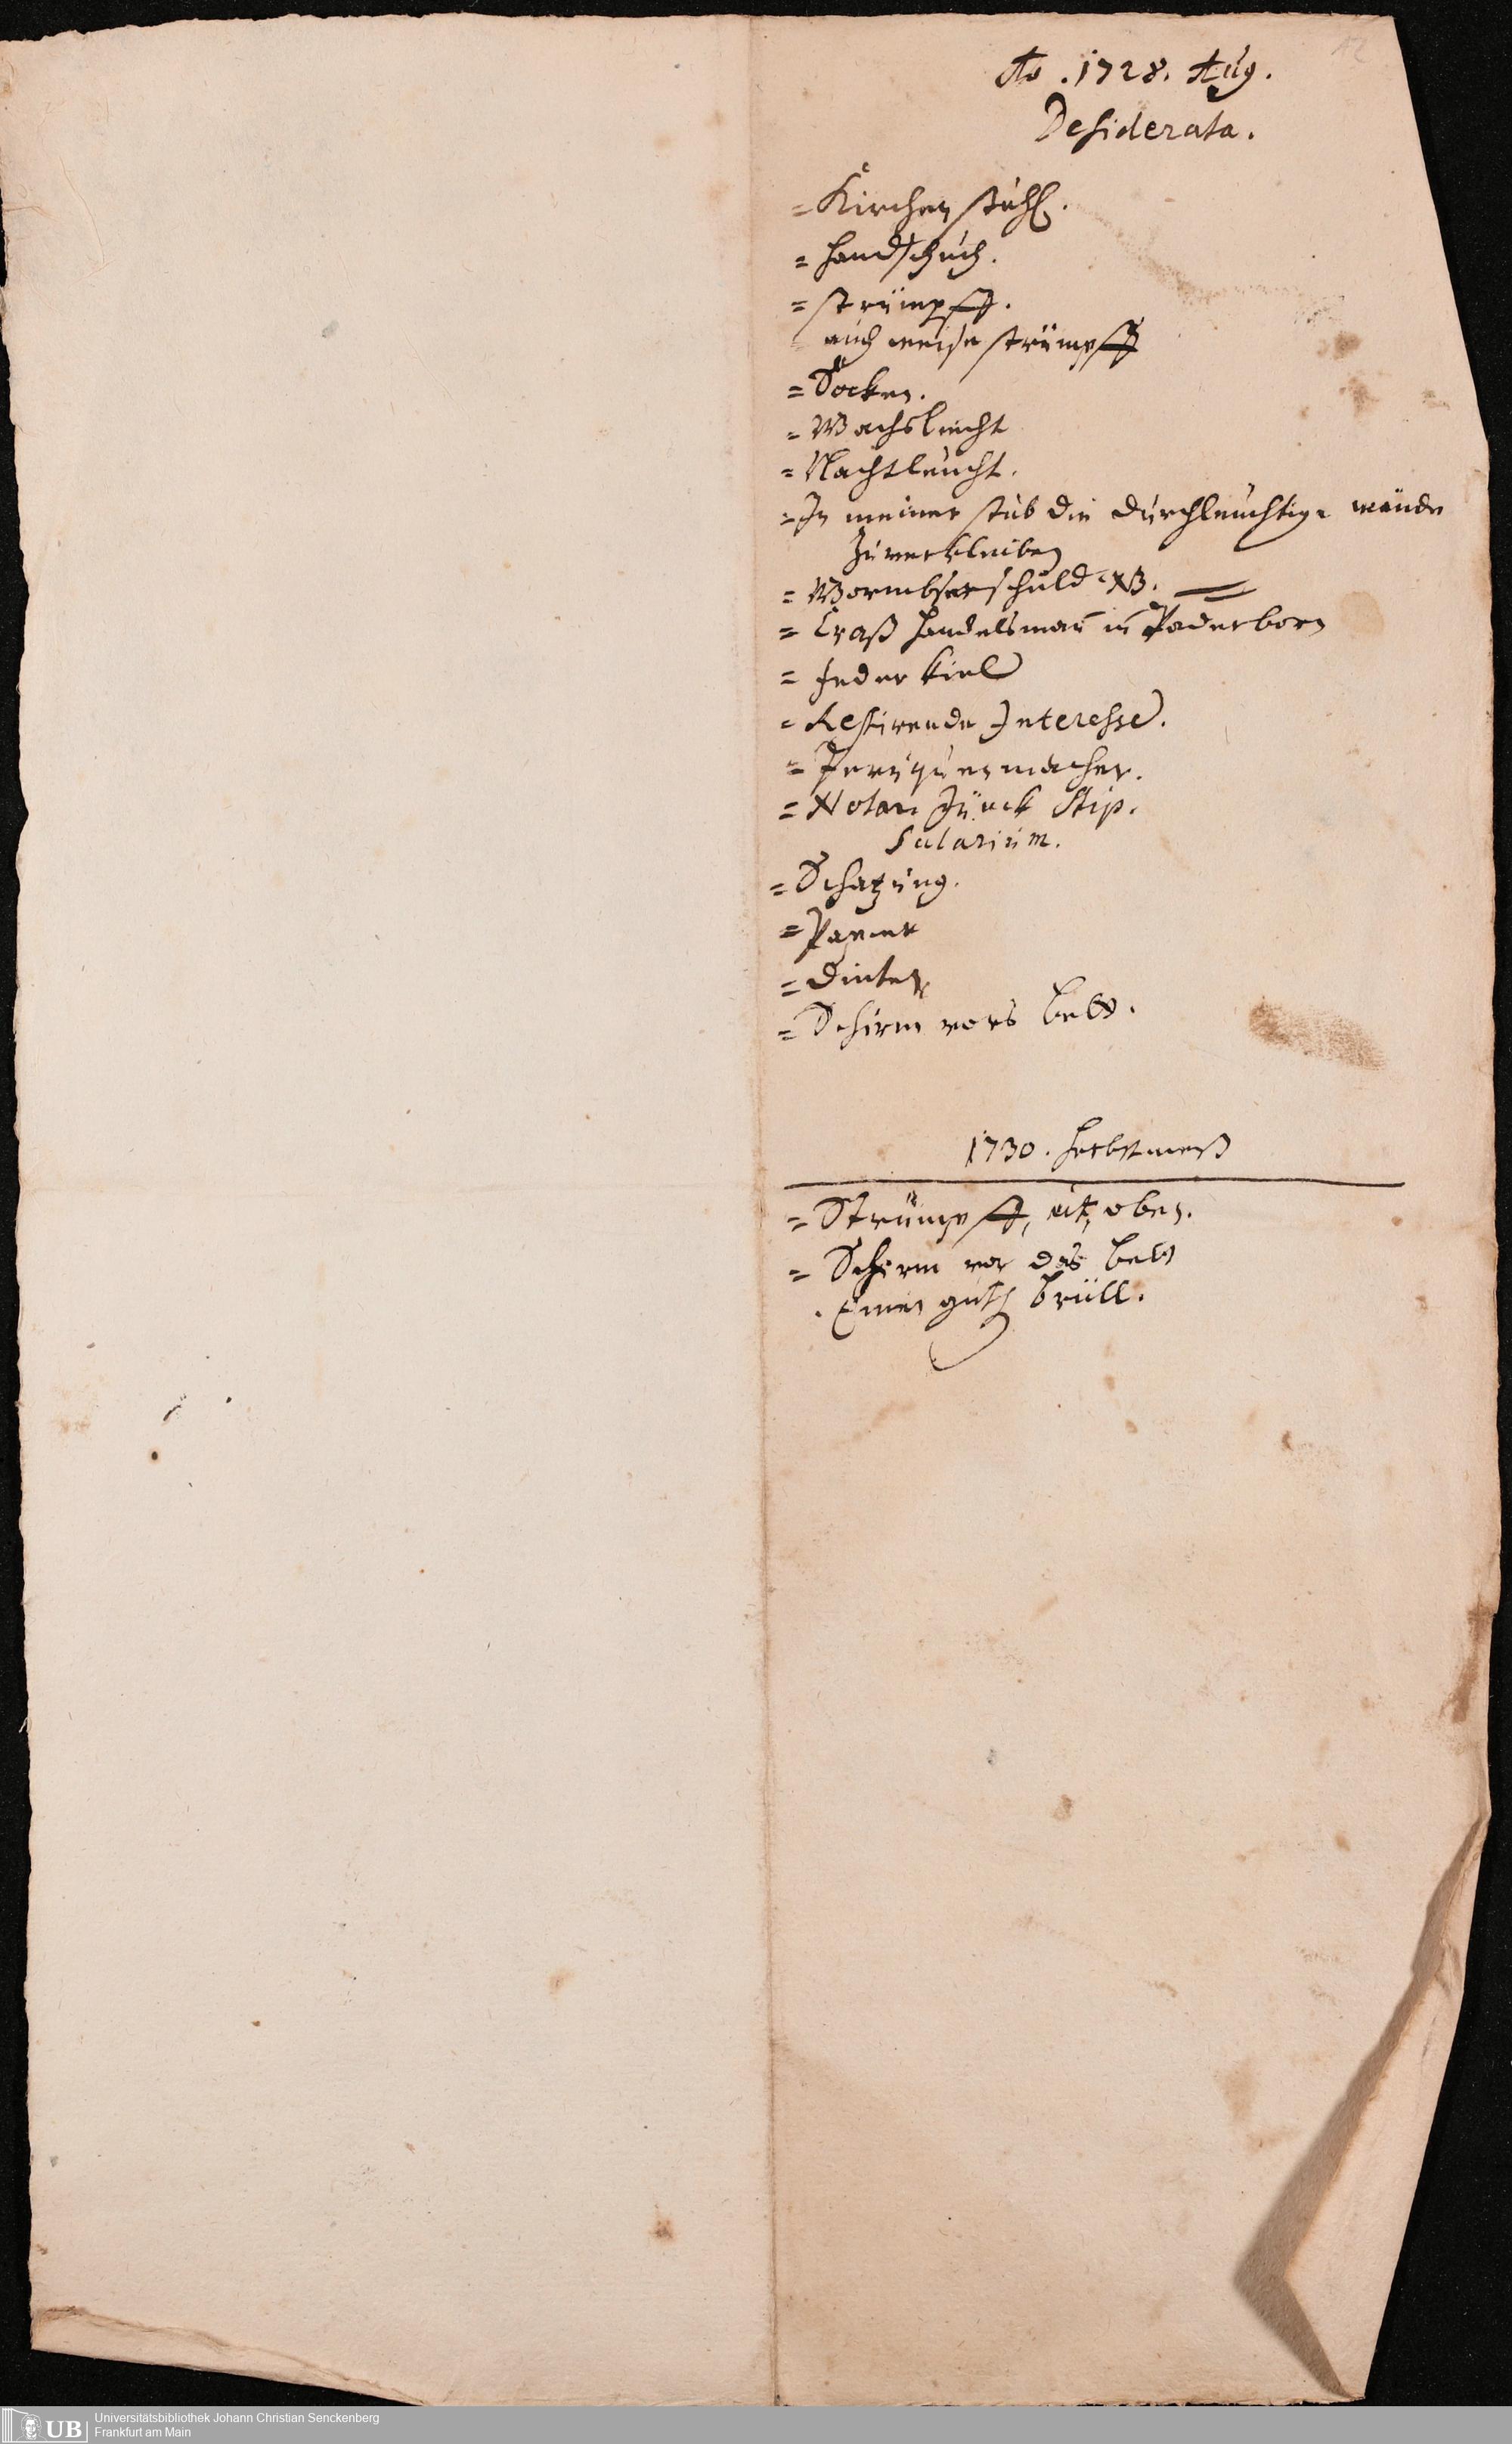 Ao. 1728. Aug.
Desiderata.
= Kirchen stuhl.
= Handschuh.
= strümpff.
auch weise strümpff
= Socken.
= Wachsliecht
= Nachtleucht.
= In meiner stub die durchleuchtige wände
zuverkleiben
= Wormbser schuld NB.
= Craß Handelsman in Paderborn
= Feder kiel
= Restirende Interesse.
= Peruquenmacher.
= Notar Stip.
Salarium.
= Schatzung.
= Papier
= Dinten
= Schirm vors bett.
1730. Herbstmeß
= Strümpff, ut, oben.
= Schirm vor das bett
. Einen guth brüll.
UB
Universitätsbibliothek Johann Christian Senckenberg
Frankfurt am Main